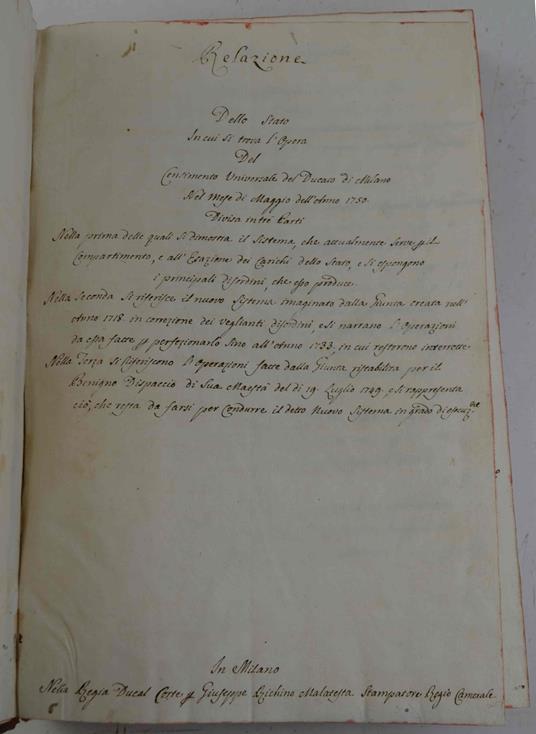 Relazione
Dello Stato
In cui si trova l'Opera
Del
Censimento Universale del Ducato di Milano
Nel Mese di Maggio dell'Anno 1750
Divisa in tre Parti
Nella prima delle quali si dimostra il Sistema, che attualmente serve p il
Compartimento, e all'Esazione dei Carichi dello Stato, e si espongono
i principali disordini, che esso produce
Nella Seconda si riferisce il nuovo Sistema imaginato dalla Giunta creata nell'
Anno 1718 in correzione dei veglianti disordini, e si narrano l'Operazioni
da essa fatte p perfezionarlo sino all'Anno 1733, in cui restarono interrotte
Nella Terza si riferiscono l'Operazioni fatte dalla Giunta ristabilita per il
Benigno Dispaccio di Sua Maestà del dì 19 Luglio 1749 e si rappresenta
ciò, che resta da farsi per condurre il detto Nuovo Sistema in grado di esecuz.ne
In Milano
Nella Regia Ducal Corte p Giuseppe Richino Malatesta Stampatore Regio Camerale